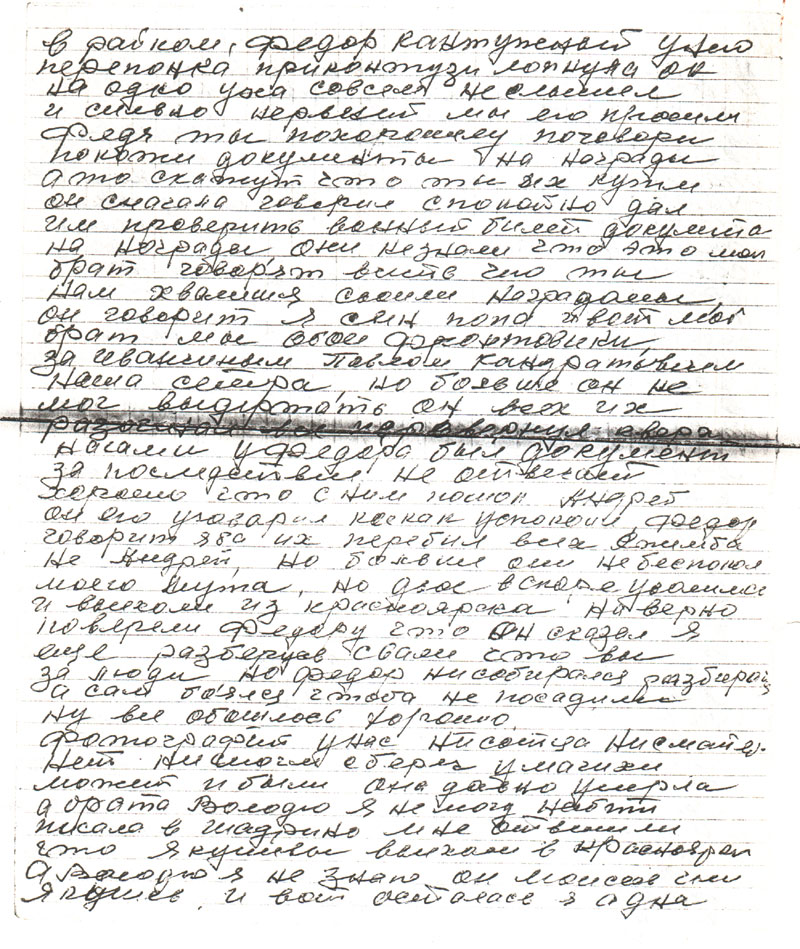 в райком, Федор кантуженый унего
перепонка приконтузи лопнула он
на одно ухо совсем не слышел
и сильно нервный мы его просили
Федя ты похорошему поговори
покажи документы на награды
а то скажут что ты их купил
он сначала говорил спокойно дал
им проверить военый билет документы
на награды, они незнали что это мой
брат говорят вить что ты
нам хвалишся своими наградами,
он говорит я сын попа и вот мой
брат мы обои фронтовики,
за Иваниным Павлом Кандратьевичем
наша сестра, но больше он не
мог выдержать он всех их
перевернул
нагами у Федора был документ
за последствия не отвечает
хорошо что с ним пошол Андрей
он его уговорил коекак успокоил, Федор
говорит я бы их перебил всех еслиб
не Андрей, но больше они небеспокоя
моего мужа, но двое вскоре уволились
и выехали из красноярска наверно
поверели Федору что он сказал я
еще разберусь с вами что вы
за люди но Федор нисобирался разбират
а сам боялся чтоба не посадили
ну все обошлось хорошо.
Фотографий унас ниотца ниматер.
нет нисмогли сберец у мачихи
может и были она давно умерла
а брата Володю я не могу найти
писала в Шадрино мне ответили
что якушевы выехали в Красноярск
А Володю я не знаю он моисеев или
якушев, и вот осталась я адна